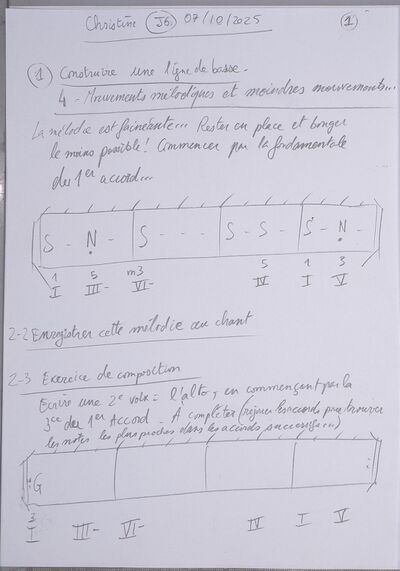 Christine J6. 07/10/2025 1
1 Construire une ligne de basse.
4 - Mouvements mélodiques et moindres mouvements...
La mélodie est fainéante... Rester en place et bouger
le moins possible ! Commencer par la fondamentale
du 1er accord...
S - N - S - - - S - S - S - N -
1 5 m3 5 1 3
I III- VI- IV I V
2-2 Enregistrer cette mélodie au chant
2-3 Exercice de composition
Ecrire une 2e voix = l'alto, en commençant par la
3ce du 1er Accord - A compléter (rejouer les accords pour trouver
les notes les plus proches dans les accords successifs...)
G
3
I III- VI- IV I V